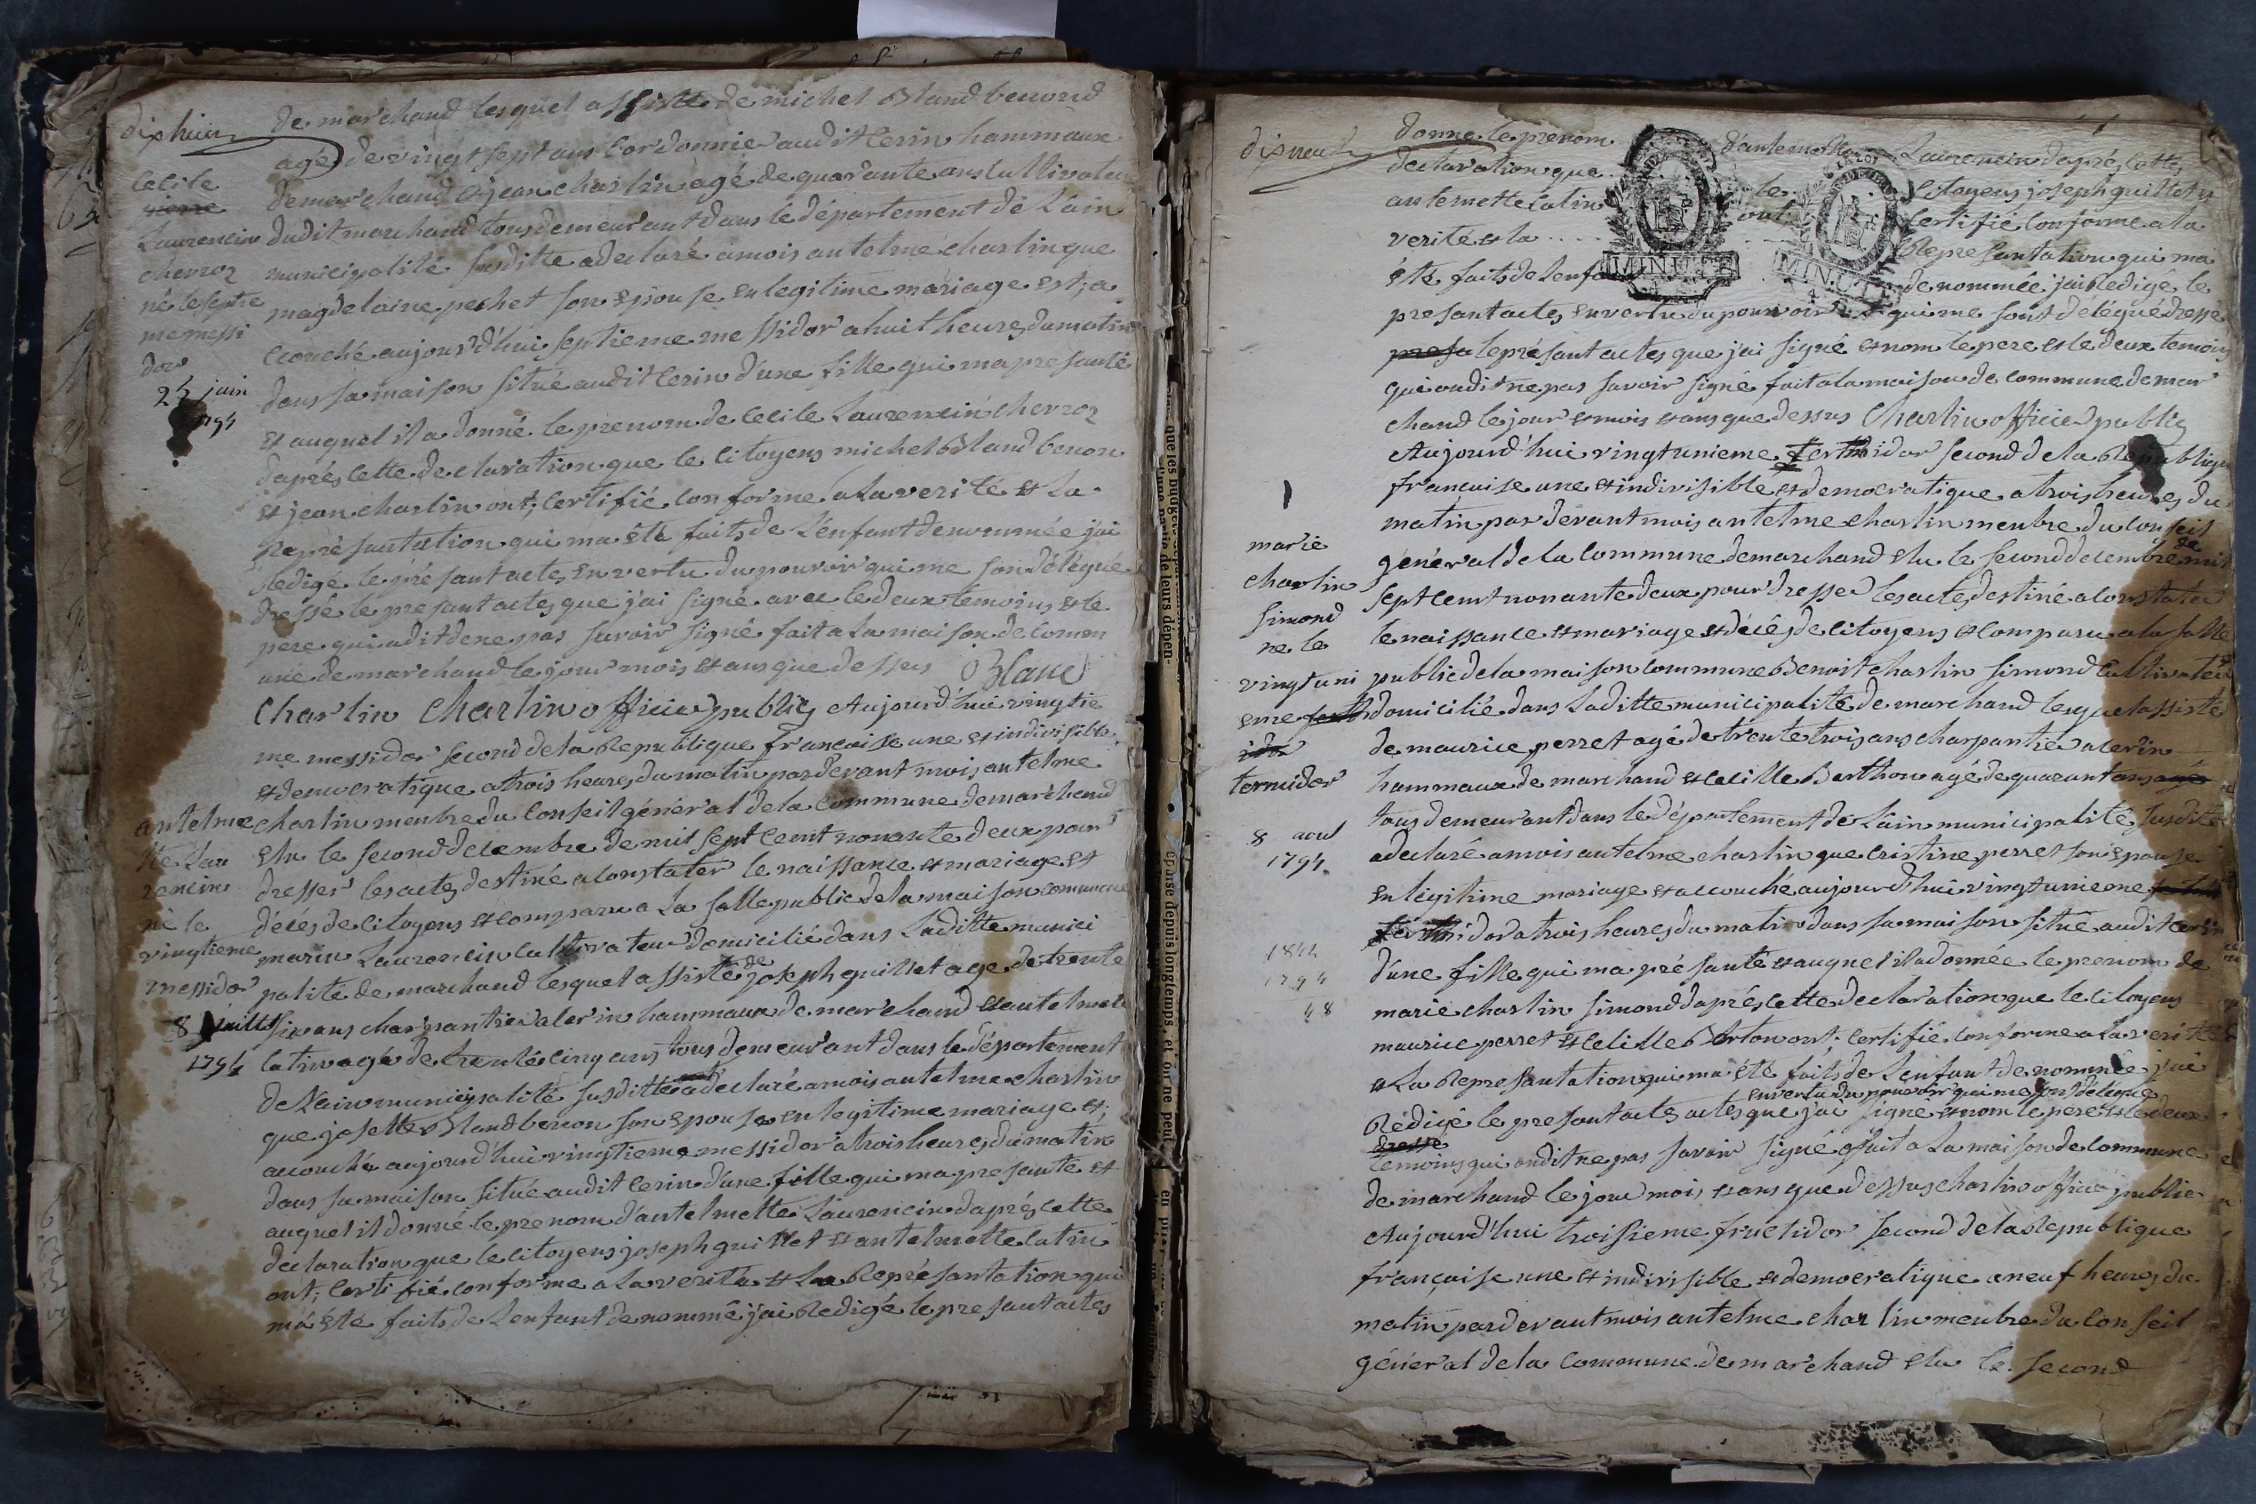 dixhuit
de marchand lesquel assisté de michel Bland benond
agé de vingt sept ans Cordonnier audit Cerin hammaux
demarchand et jean charlin agé de quarante ans cultivateu
dudit marchand tous demeurant dans le département de L'ain
municipalité susditte adeclaré amois antelme charlin que
magdelaine pechet son epouse en legitime mariage est, a
Ccouché aujourd'hui septieme messidor ahuit heures du matin
dans sa maison situé audit Cerin d'une fille qui ma présanté
et auquel il a donné le prenom de Cecile Laurencin cherroz
daprés cette declaration que le citoyens michel Bland benon
et jean charlin ont, certifié conforme a la verité et La
Représantation qui ma été faits de L'enfant denommée j'ai
Redigé le présant actes en vertu du pouvoir qui me son délégué
dressé le présant actes que j'ai signé avec le deux temoins et le
pere qui adit de ne pas savoir signé fait a la maison de comm
une de marchand le jour mois et ans que dessus Blanc
Charlin Charlin officier public Aujourd'hui vingtie
me messidor second de la Republique francaise une et indivisible
et democratique a trois heures du matin pardevant mois antelme
charlin menbre du Conseil général de la commune demarchand
elu le second decembre de mil sept cent nonante deux pour
dresser les actes destiné a constater le naissance et mariage et
décés de citoyens et comparu a La salle public de la maison commune
marin Laurencin cultivateur domicilié dans Laditte munici
palité de marchand lesquel assisté de joseph quillet age de trente
six ans charpantier a cerin hammaux de marchand et antelmete
catin agé de trente cinq ans tous demeurant dans le département
de L'ain municipalité susditte adeclaré amois antelme charlin
que josette Bland benon son epouse en legitime mariage et;
accouché aujourd'hui vingtieme messidor a trois heures du matin
dans sa maison situé audit Cerin d'une fille qui ma presanté et
auquel il donné le prenom d'antelmette Laurencin daprés cette
declaration que le citoyens joseph quillet et antelmette catin
ont; certifié conforme a la verité et La Représantation qui
ma été faits de L'enfant denommé j'ai Redigé le presant actes
Cecile
Laurencin
cherroz
né le septie
me messi
dor
25 juin
1794
antelme
tte Lau
rencin
né le
vingtieme
messidor
8 juillet
1794
dixneuf
donne le prenom d'antelmette Laurencin daprés cette
declaration que le citoyens joseph quillet et
antemette catin ont certifié conforme a la
verité et la .... Représantation qui ma
été faits de L'enfant denommée j'ai Redigé le
presant actes en vertu du pouvoir qui me sont délégué dressé
presa le présant actes que j'ai signé et nom le pere et le deux temoins
qui ondit ne pas savoir signé fait a la maison de commune de mar
chand le jour et mois et ans que dessus Charlin officier public
Aujourd'hui vingtunieme termidor second de la Republique
francaise une et indivisible et democratique a trois heures du
matin par devant mois antelme charlin menbre du conseil
général de la commune demarchand elu le second decembre de mil
sept cent nonante deux pour dresser les actes destiné a constater
le naissance et mariage et décés de citoyens et comparu a la salle
public de la maison commune Benoit charlin simond cultivateur
domicilié dans Laditte municipalité de marchand lesquel assisté
de maurice perret agé de trente trois ans charpantier a cerin
hammaux de marchand et Cecille Berthon agé de quarant ans agé
tous demeurant dans le département de L'ain municipalité susdite
adeclaré amois antelme charlin que cristine perret son epouse
en legitime mariage et accouché aujourd'hui vingtunieme
termidor a trois heures du matin dans sa maison situé audit Cerin
d'une fille qui ma présanté et auquel il a donnee le prenom de
marie charlin simond daprés cette declaration que le citoyens
maurice perret et Celille Bertow ont; certifié conforme a la verité
et La Represantation qui ma été faits de L'enfant denommée j'ai
en vertu du pouvoir qui me sont délégué
Rédigé le presant actes actes que j'ai signé et nom le pere et le deux
dressé
temoins qui ondit ne pas savoir signé fait a La maison de commune
de marchand le jour mois et ans que dessus charlin officier public
Aujourd'hui troisieme fructidor second de la Republique
française une et indivisible et democratique a neuf heures du
matin pardevant mois antelme charlin menbre du conseil
général de la commune de marchand elu le second
marie
charlin
simond
ne le
vingtuni
eme
termidor
8 aout
1794
1842
1794
48
MINUTE
MINUTE